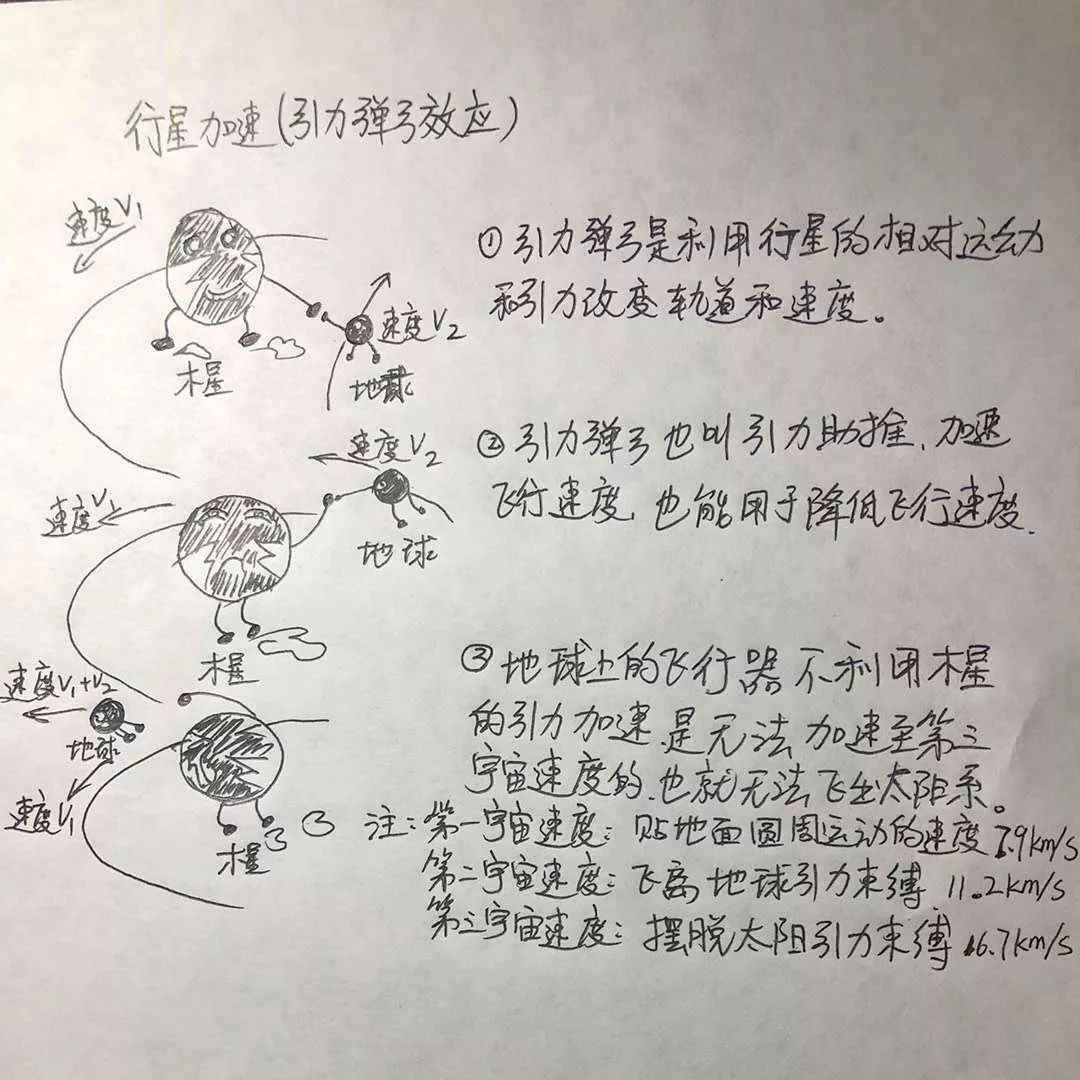 行星加速(引力弹弓效应)
速度V₁
速度V₂
木星
地球
①引力弹弓是利用行星的相对运动
和引力改变轨道和速度。
速度V₂
速度V₁
地球
木星
②引力弹弓也叫引力助推,加速
飞行速度,也能用于降低飞行速度.
速度V₁+V₂
地球
速度V₁
木星
③地球上的飞行器不利用木星
的引力加速,是无法加速至第三
宇宙速度的,也就无法飞出太阳系。
注:第一宇宙速度:贴地面圆周运动的速度 7.9km/s
第二宇宙速度:飞离地球引力束缚 11.2km/s
第三宇宙速度:摆脱太阳引力束缚 16.7km/s